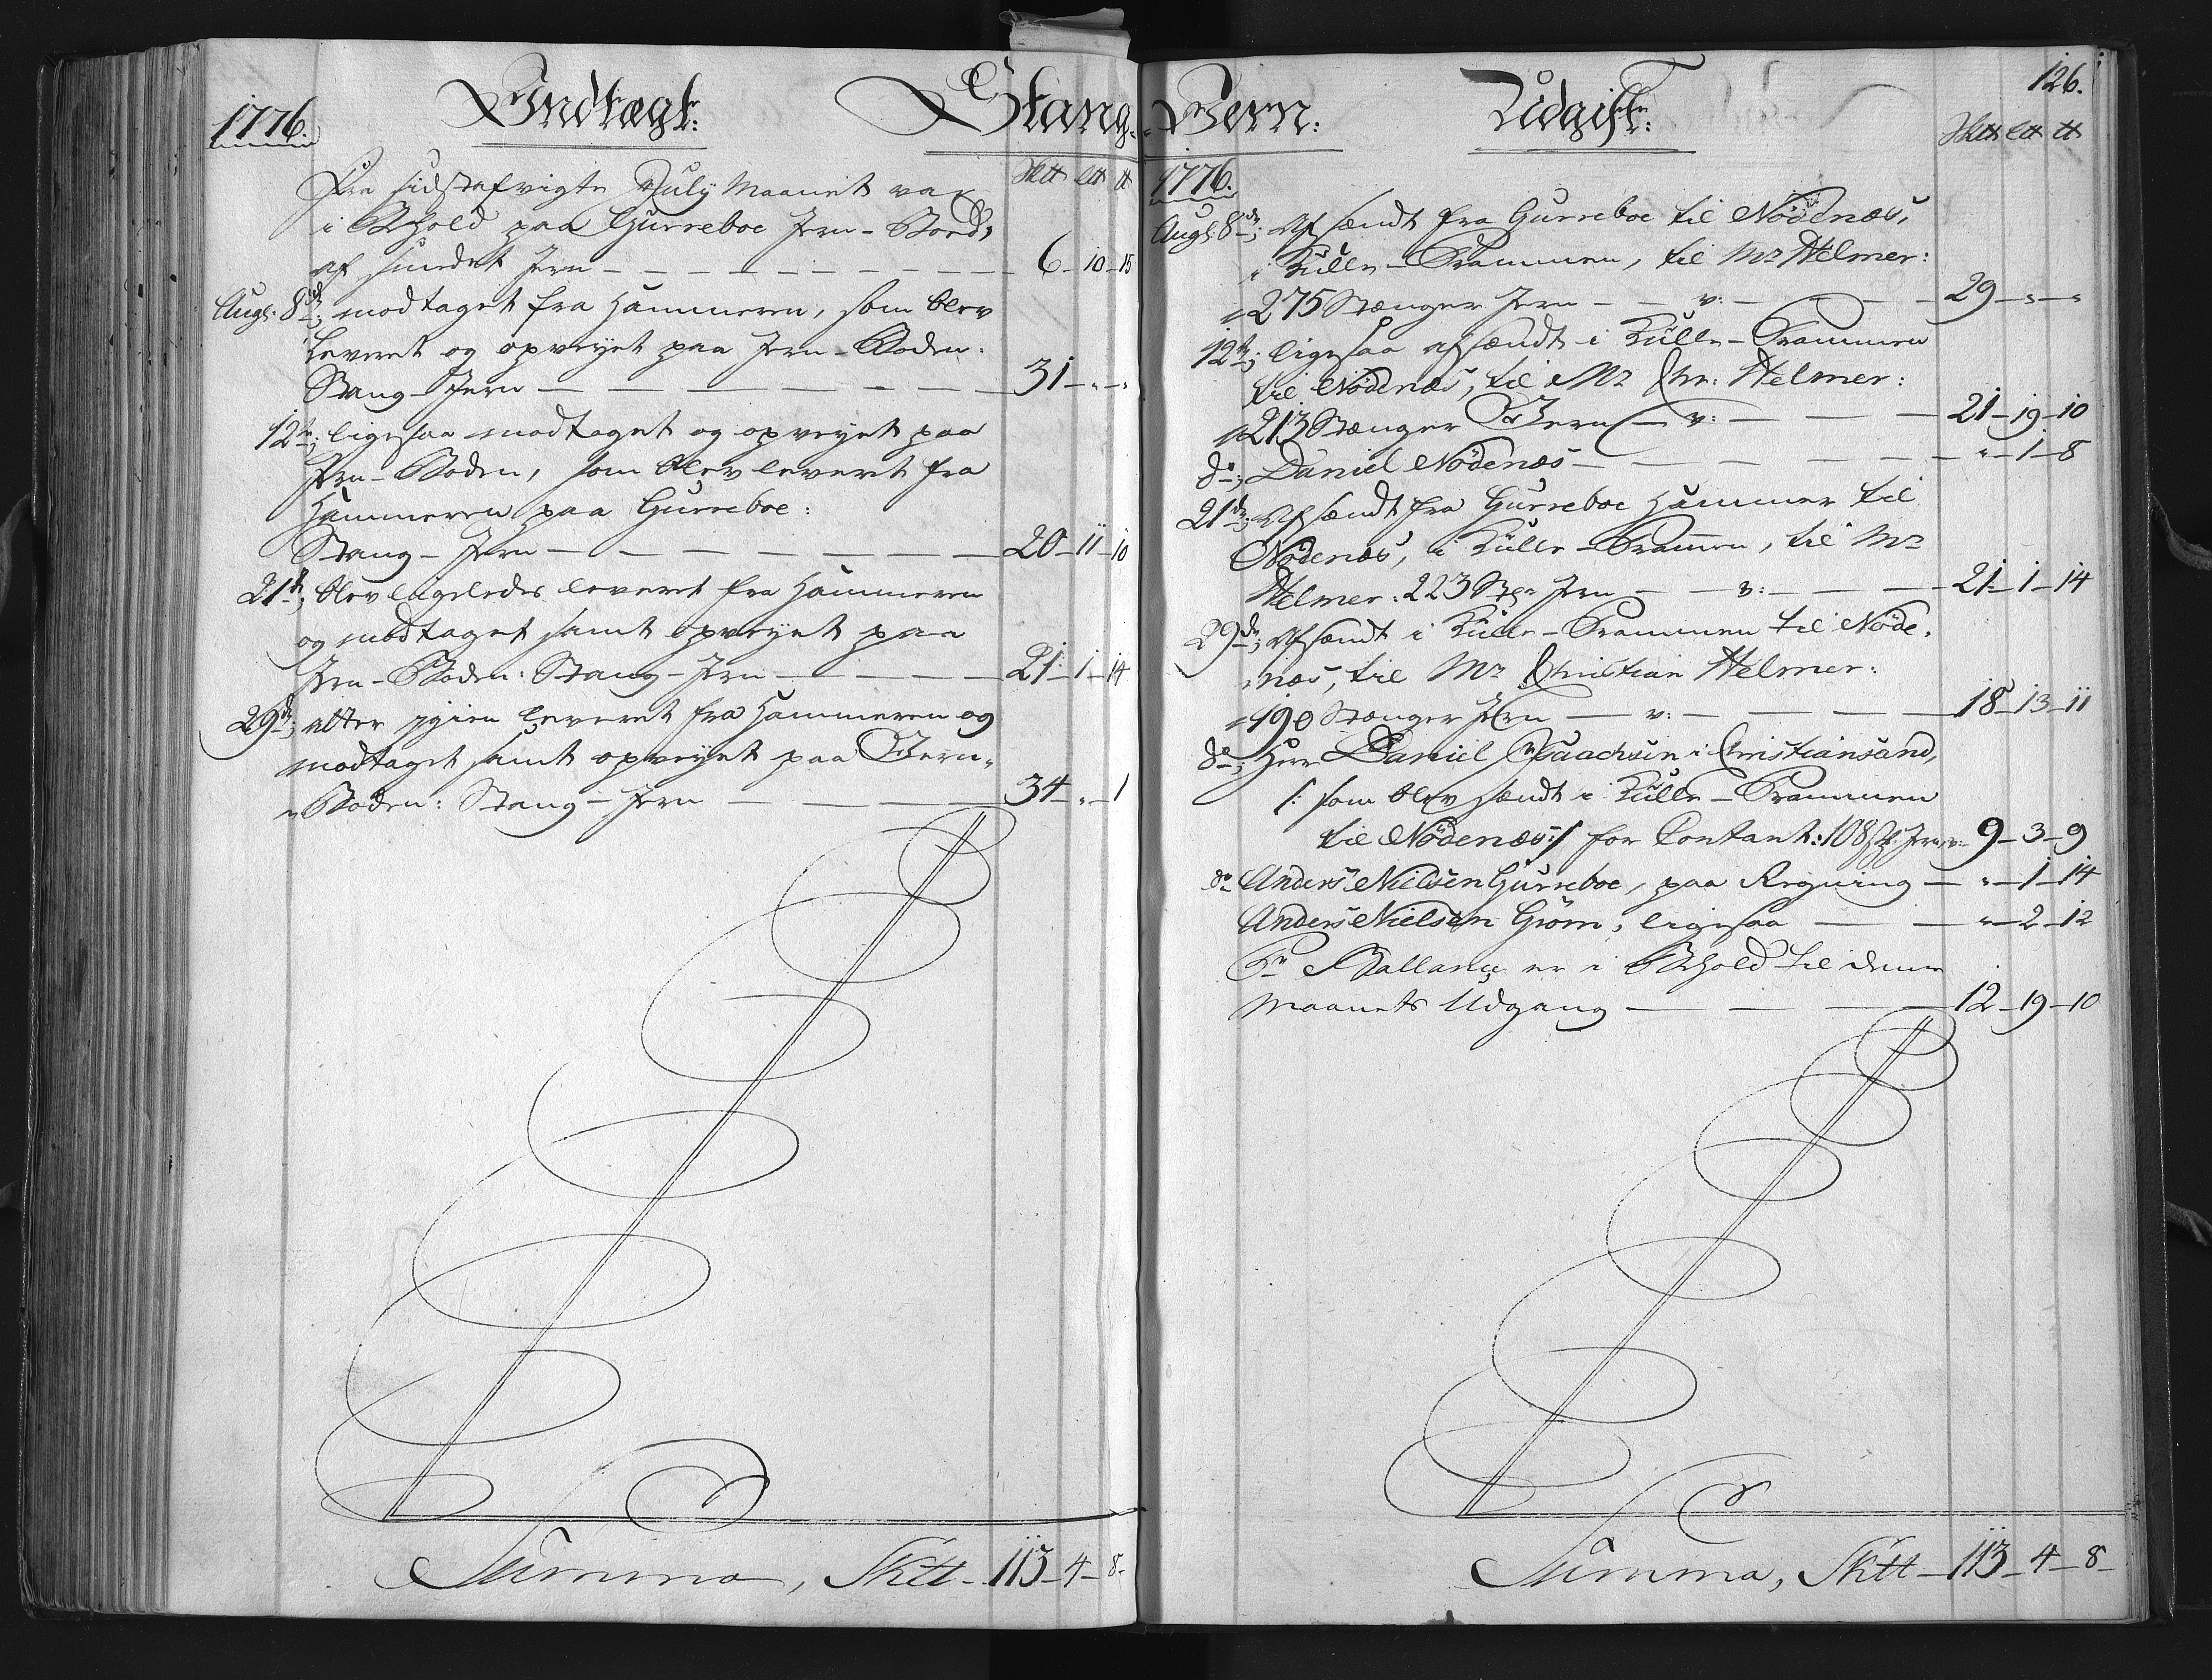 1776.
Indtægt:
Stang-
Sktt Ltt tt
Fra sidstafvigte July Maanet var
i Behold paa Gurreboe Jern-Boed,
af smedet Jern — 6-10-15
Augs: 8de; modtaget fra Hammeren, som blev
leveret og opveyet paa Jern-Boden:
Stang-Jern — 31-"-"
12te; ligesaa modtaget og opveyet paa
Jern-Boden, som blev leveret fra
Hammeren paa Gurreboe:
Stang-Jern — 20-11-10
21de; blev ligeledes leveret fra Hammeren
og modtaget samt opveyet paa
Jern-Boden: Stang-Jern — 21-1-14
29de; atter igien leveret fra Hammeren og
modtaget samt opveyet paa Jern-
"Boden: Stang-Jern — 34-"-1
Summa, Sktt-113-4-8-
Jern:
Udgift:
126.
Sktt Ltt tt
1776.
Augs: 8de; Afsændt fra Gurreboe til Nödenæs,
i Kulle-Prammen, til Mr Helmer:
"275 Stænger Jern — v: — 29-"-"
12te; ligesaa afsændt i Kulle-Prammen
til Nödenæs, til Mr Chr: Helmer:
"213 Stænger Jern — v: — 21-19-10
do; Daniel Nödenæs — "-1-8
21de; Afsændt fra Gurreboe Hammer til
Nödenæs, i Kulle-Prammen, til Mr
Helmer: 223 Stgr Jern — v: — 21-1-14
29de; Afsændt i Kulle-Prammen til Nöde-
næs, til Mr Christian Helmer:
"190 Stænger Jern — v: — 18-13-11
do; Herr Daniel Isaachsen i Christiansand,
/: som blev sændt i Kulle-Prammen
til Nödenæs:/ for Contant: 108 St: Jern, v: 9-3-9
do Anders Nielsen Gurreboe, paa Regning — "-1-14
Anders Nielsen Grom, ligesaa — "-2-12
Pr Ballance er i Behold til denne
Maanets Udgang — 12-19-10
Summa, Sktt-113-4-8-